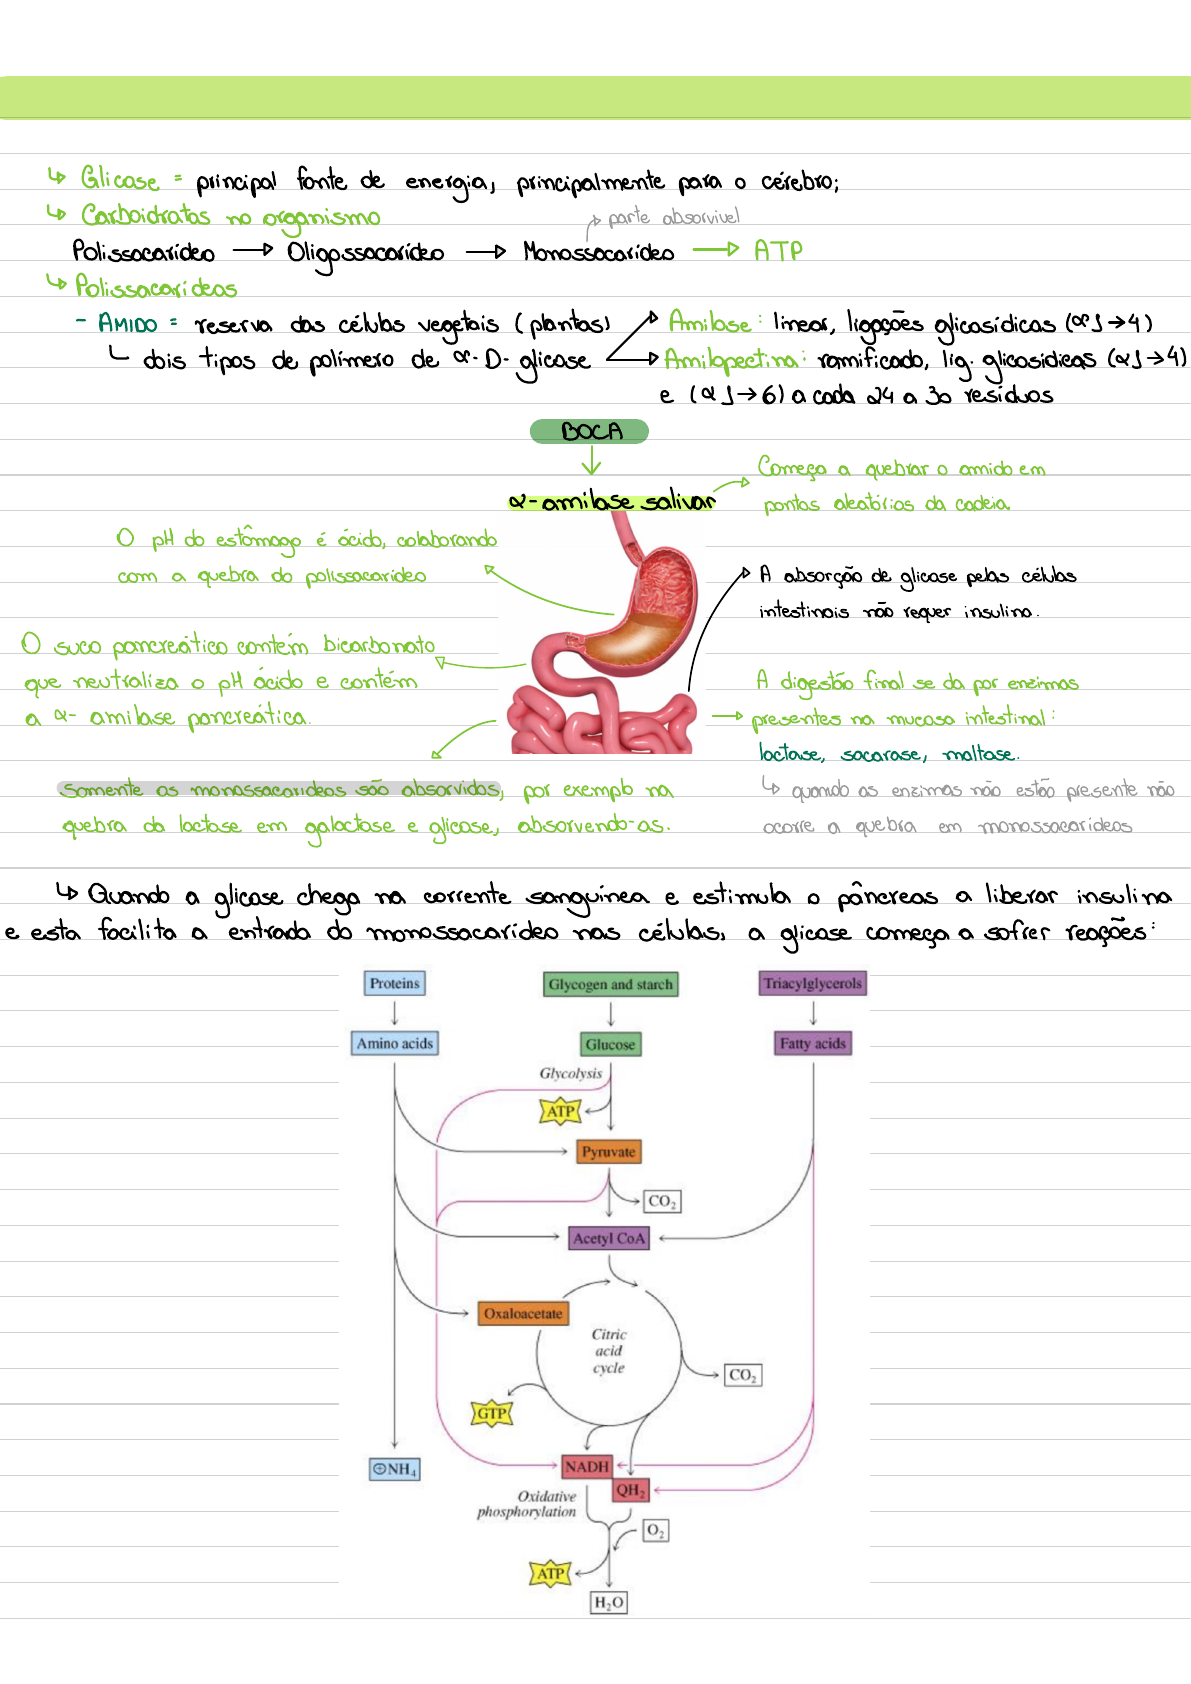 ↳ Glicose = principal fonte de energia, principalmente para o cérebro;
↳ Carboidratos no organismo
↱ parte absorvível
Polissacarídeo → Oligossacarídeo → Monossacarídeo → ATP
↳ Polissacarídeos
- AMIDO = reserva das células vegetais (plantas)
Amilose: linear, ligações glicosídicas (α 1→4)
└ dois tipos de polímero de α-D-glicose
Amilopectina: ramificado, lig. glicosídicas (α 1→4)
e (α 1→6) a cada 24 a 30 resíduos
BOCA
α-amilase salivar
Começa a quebrar o amido em
pontos aleatórios da cadeia
O pH do estômago é ácido, colaborando
com a quebra do polissacarídeo
A absorção de glicose pelas células
intestinais não requer insulina.
O suco pancreático contém bicarbonato
que neutraliza o pH ácido e contém
a α-amilase pancreática.
A digestão final se da por enzimas
presentes na mucosa intestinal:
lactase, sacarase, maltase.
↳ quando as enzimas não estão presente não
ocorre a quebra em monossacarídeos
Somente os monossacarídeos são absorvidos, por exemplo na
quebra da lactase em galactose e glicose, absorvendo-as.
↳ Quando a glicose chega na corrente sanguínea e estimula o pâncreas a liberar insulina
e esta facilita a entrada do monossacarídeo nas células, a glicose começa a sofrer reações:
Proteins
Glycogen and starch
Triacylglycerols
Amino acids
Glucose
Fatty acids
Glycolysis
ATP
Pyruvate
CO₂
Acetyl CoA
Oxaloacetate
Citric
acid
cycle
CO₂
GTP
⊕NH₄
NADH
QH₂
Oxidative
phosphorylation
O₂
ATP
H₂O